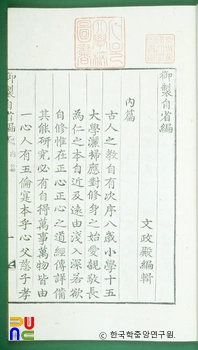 御製自省編
文政殿編輯
內篇
古人之教自有次序八歲小學十五
大學灑掃應對修身之始愛親敬長
為仁之本自近及遠由淺入深若欲
自修惟在正心正心之道經傳詳備
其能研究必有自得萬事萬物皆由
一心人有五倫寔本乎心父慈子孝
御製自省編
한국학중앙연구원.